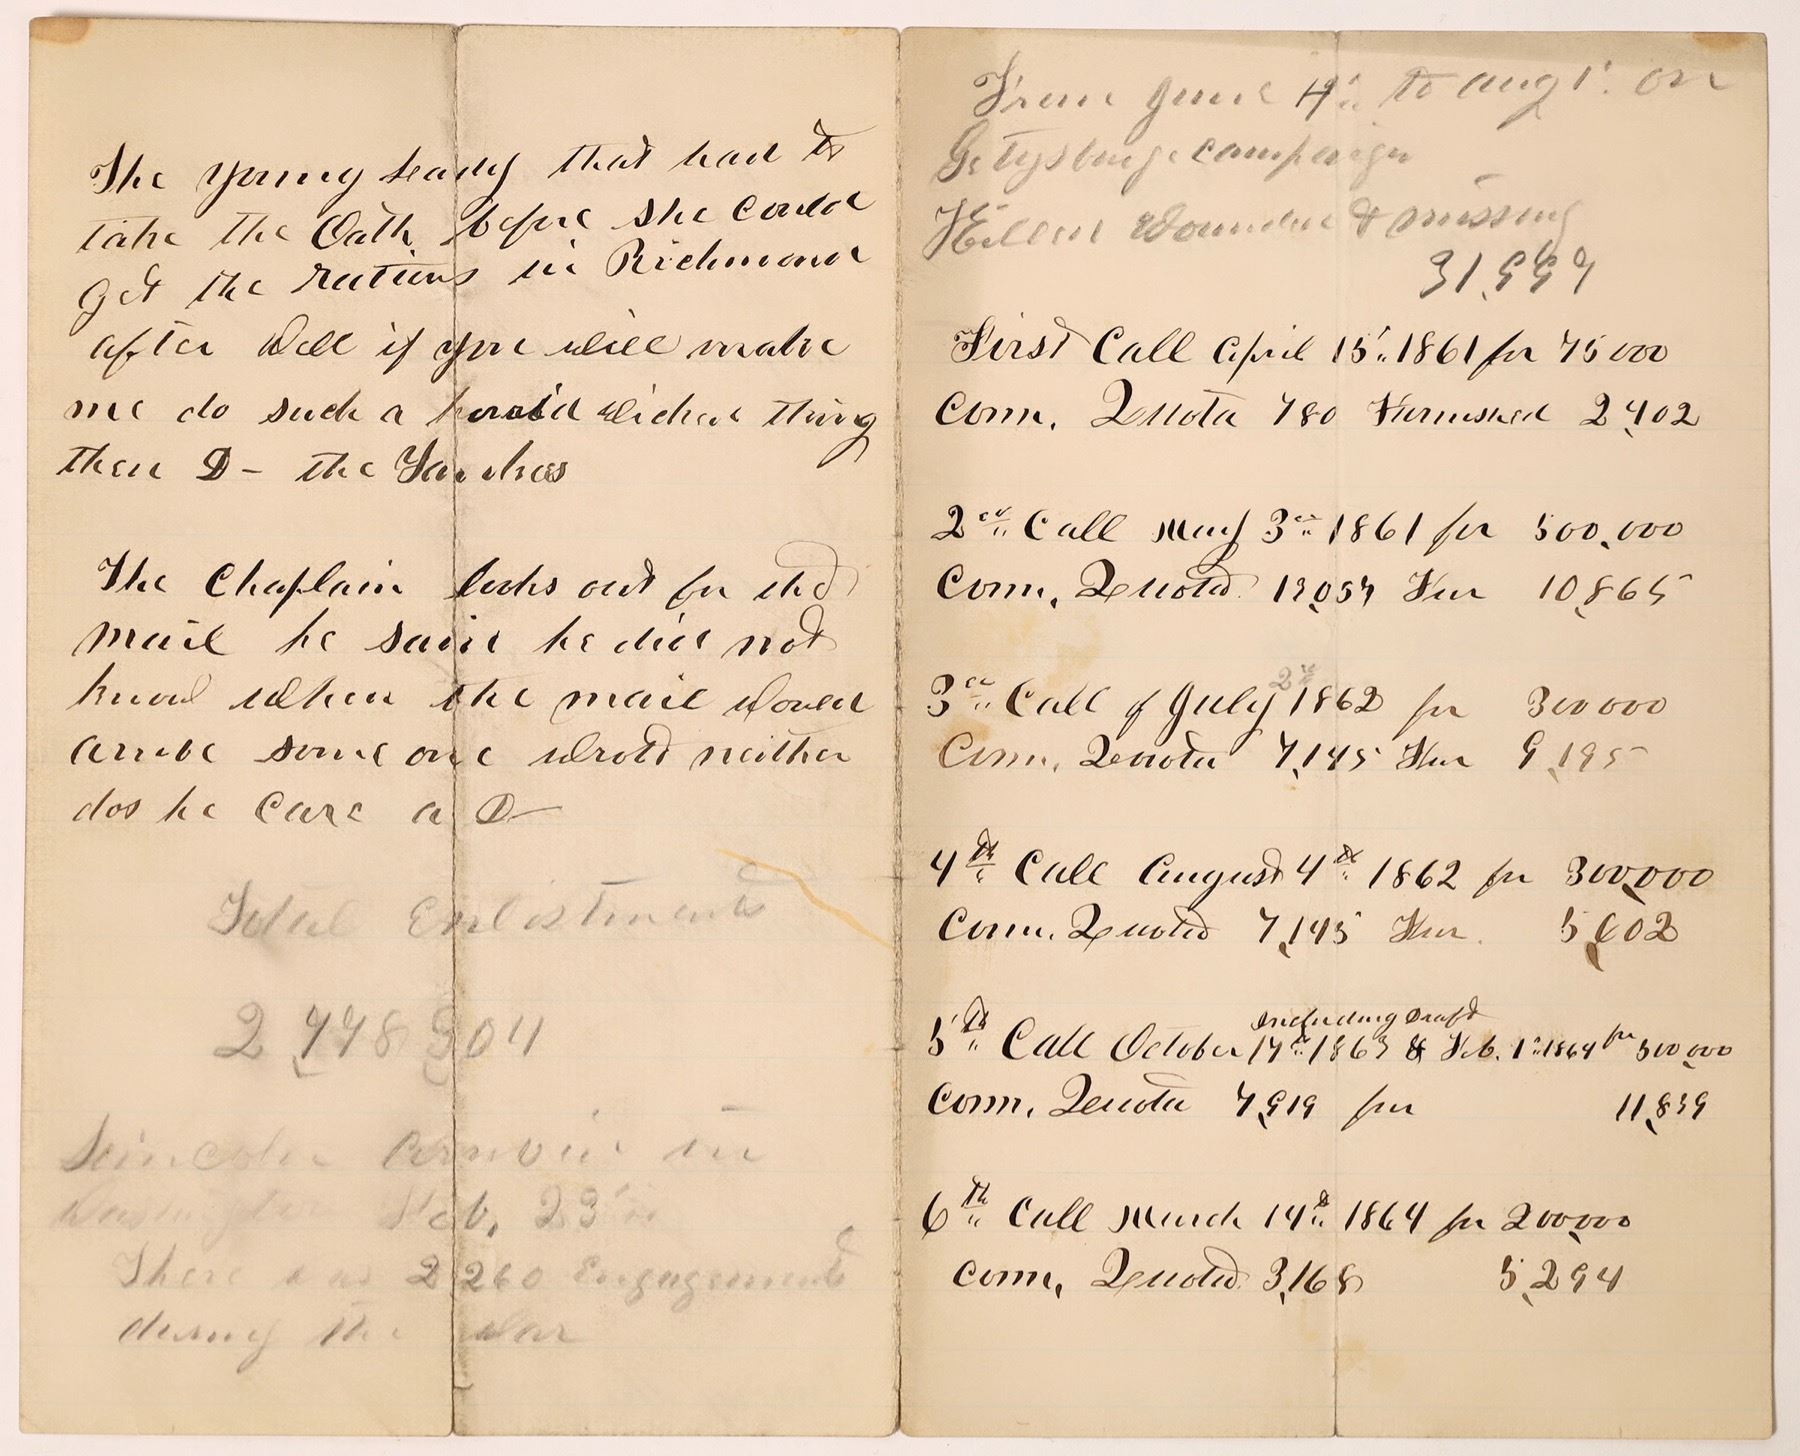 The young Leady that had to
take the Oath before she could
get the rations in Richmond
after Well if you will make
me do such a horid wicked thing
then D— the Yankees
The Chaplain looks out for the
mail he said he did not
know when the mail would
arrive some one wrote neither
dos he care a D—
Total Enlistments
2,778,304
Lincoln arrived in
Washington Feb, 23"
There was 2260 Engagements
during the War
From June to Aug 1" on
Gettysburg campaign
Killed Wounded & missing
First Call April 15" 1861 for 75000
Conn. Quota 780 Furnished 2,402
2nd Call May 3rd 1861 for 500,000
Conn, Quota Fur 10,865
3rd Call of July 2nd 1862 for 300000
Conn, Quota 7,145 Fur 9,195
4th Call August 4th 1862 for 300,000
Conn. Quota 7,145 Fur. 5,602
including Draft
5th Call October 17th 1863 & Feb. 1" 1864 for 500,000
Conn, Quota 7,919 fur 11,839
6th Call March 14th 1864 for 200,000
Conn, Quota 3,168 5,294